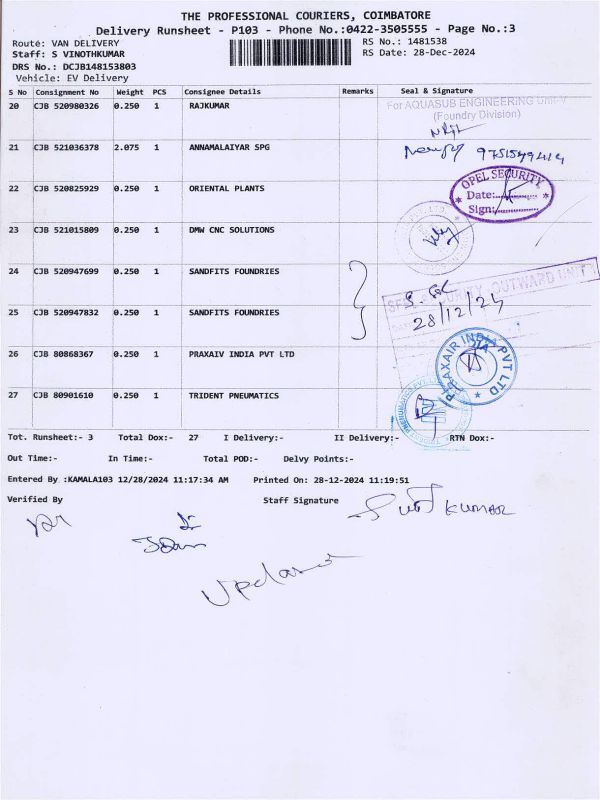 THE PROFESSIONAL COURIERS, COIMBATORE
Delivery Runsheet - P103 - Phone No.:0422-3505555 - Page No.:3
Route: VAN DELIVERY RS No.: 1481538
Staff: S VINOTHKUMAR RS Date: 28-Dec-2024
DRS No.: DCJB148153803
Vehicle: EV Delivery
S No Consignment No Weight PCS Consignee Details Remarks Seal & Signature
20 CJB 520980326 0.250 1 RAJKUMAR For AQUASUB ENGINEERING Unit-V
(Foundry Division)
21 CJB 521036378 2.075 1 ANNAMALAIYAR SPG
22 CJB 520825929 0.250 1 ORIENTAL PLANTS OPEL SECURITY
Date:
Sign:
23 CJB 521015809 0.250 1 DMW CNC SOLUTIONS
24 CJB 520947699 0.250 1 SANDFITS FOUNDRIES
SECURITY OUTWARD UNITY
28/12/24
25 CJB 520947832 0.250 1 SANDFITS FOUNDRIES
26 CJB 80868367 0.250 1 PRAXAIV INDIA PVT LTD PRAXAIR INDIA PVT LTD
27 CJB 80901610 0.250 1 TRIDENT PNEUMATICS
Tot. Runsheet:- 3 Total Dox:- 27 I Delivery:- II Delivery:- RTN Dox:-
Out Time:- In Time:- Total POD:- Delvy Points:-
Entered By :KAMALA103 12/28/2024 11:17:34 AM Printed On: 28-12-2024 11:19:51
Verified By Staff Signature
KUMAR